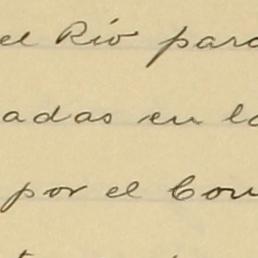 el Río para
adas en lo
por el Con